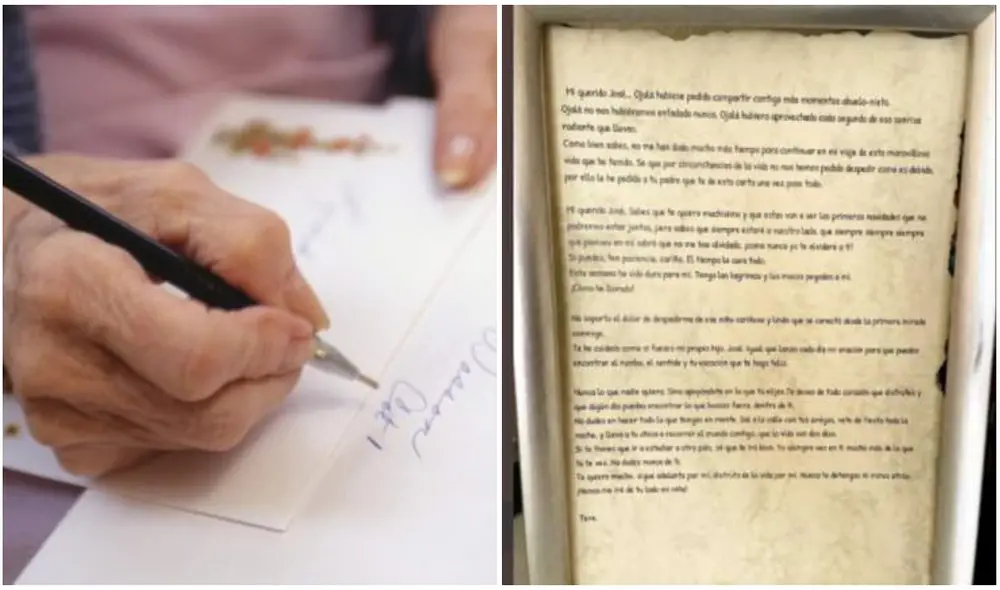 Mi querido José... Ojalá hubiese podido compartir contigo más momentos abuelo-nieto.
Ojalá no nos hubiéramos enfadado nunca. Ojalá hubiera aprovechado cada segundo de esa sonrisa
radiante que llevas.
Como bien sabes, no me han dado mucho más tiempo para continuar en mi viaje de esta maravillosa
vida que he tenido. Se que por circunstancias de la vida no nos hemos podido despedir como es debido,
por ello le he pedido a tu padre que te de esta carta una vez pase todo.
Mi querido José, Sabes que te quiero muchísimo y que estas van a ser las primeras navidades que no
podremos estar juntos, pero sabes que siempre estaré a vuestro lado, que siempre siempre siempre
que pienses en mí sabré que no me has olvidado, ¡como nunca yo te olvidaré a ti!
Si puedes, ten paciencia, cariño. El tiempo lo cura todo.
Esta semana ha sido dura para mí. Tengo las lágrimas y los mocos pegados a mí.
¡Cómo he llorado!
No soporto el dolor de despedirme de ese niño cariñoso y lindo que se conectó desde la primera mirada
conmigo.
Te he cuidado como si fueras mi propio hijo, José. Igual que lanzo cada día mi oración para que puedas
encontrar el rumbo, el sentido y tu vocación que te haga feliz.
Nunca lo que nadie quiera. Sino apoyándote en lo que tu elijas. Te deseo de todo corazón que disfrutes y
que algún día puedas encontrar lo que buscas fuera, dentro de ti.
No dudes en hacer todo lo que tengas en mente. Sal a la calle con tus amigos, vete de fiesta toda la
noche, y lleva a tu chica a recorrer el mundo contigo, que la vida son dos días.
Si te tienes que ir a estudiar a otro país, sé que te irá bien. Yo siempre veo en ti mucho más de lo que
tú te ves. No dudes nunca de ti.
Te quiero mucho, sigue adelante por mí, disfruta de la vida por mí. Nunca te detengas ni mires atrás.
¡Nunca me iré de tu lado mi niño!